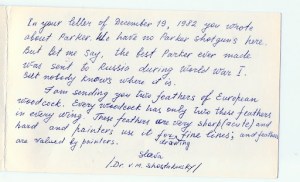 In your letter of December 19, 1982 you wrote
about Parker. We have no Parker shotguns here.
But let me say, the best Parker ever made
was sent to Russia during World War I.
But nobody knows where it is.
I am sending you two feathers of European
woodcock. Every woodcock has only two these feathers
in every wing. These feathers are very sharp (acute) and
hard and painters use it for drawing fine lines, and feathers
are valued by painters.
Slava
/Dr V.M. Shostakovsky/